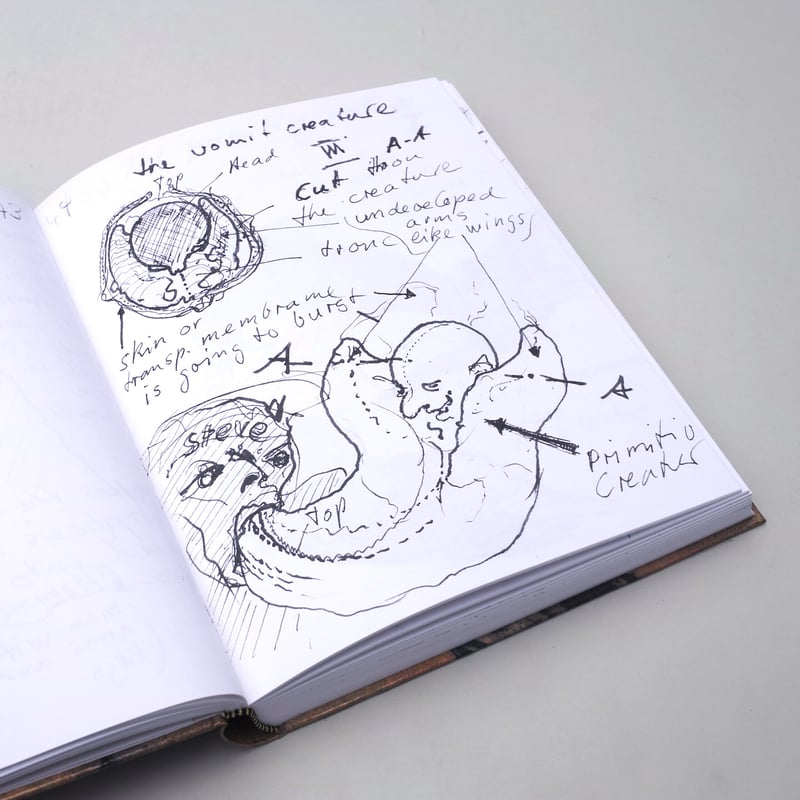 the vomit creature
Top
Head
A-A
Cut
the creature
undeveloped
arms
like wings
tronc
skin or
transp. membrame
is going to burst
A
A
Steve
Top
primitiv
Creater